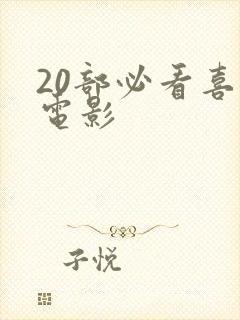 20部必看喜
電影
子悦